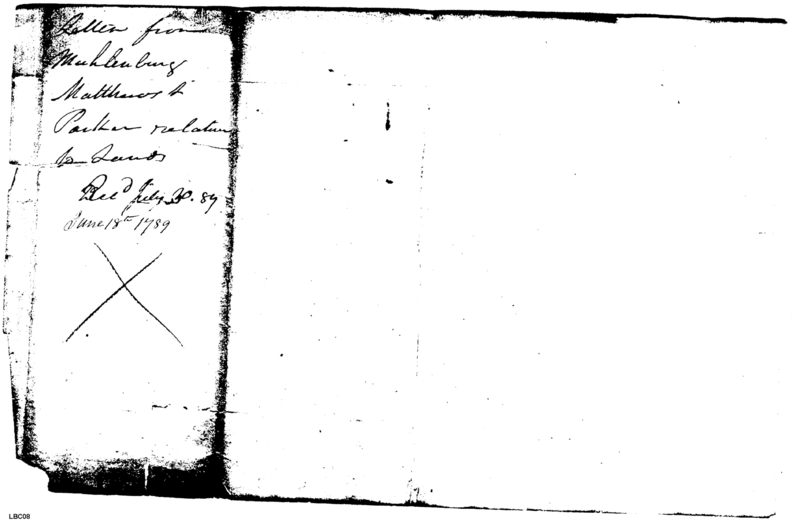 Letter from
Muhlenburg
Matthews &
Parker relative
to Lands
Rec^d July 30. 89
June 18th 1789
LBC08